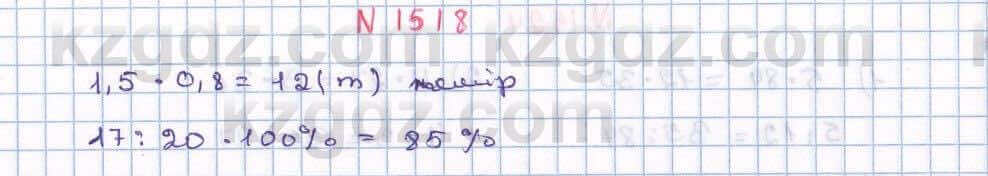 N 1518
1,5 · 0,8 = 12 (т) темір
17 : 20 · 100% = 85 %
kzgdz.com
kzgdz.com
kzgdz.com
kzgdz.com